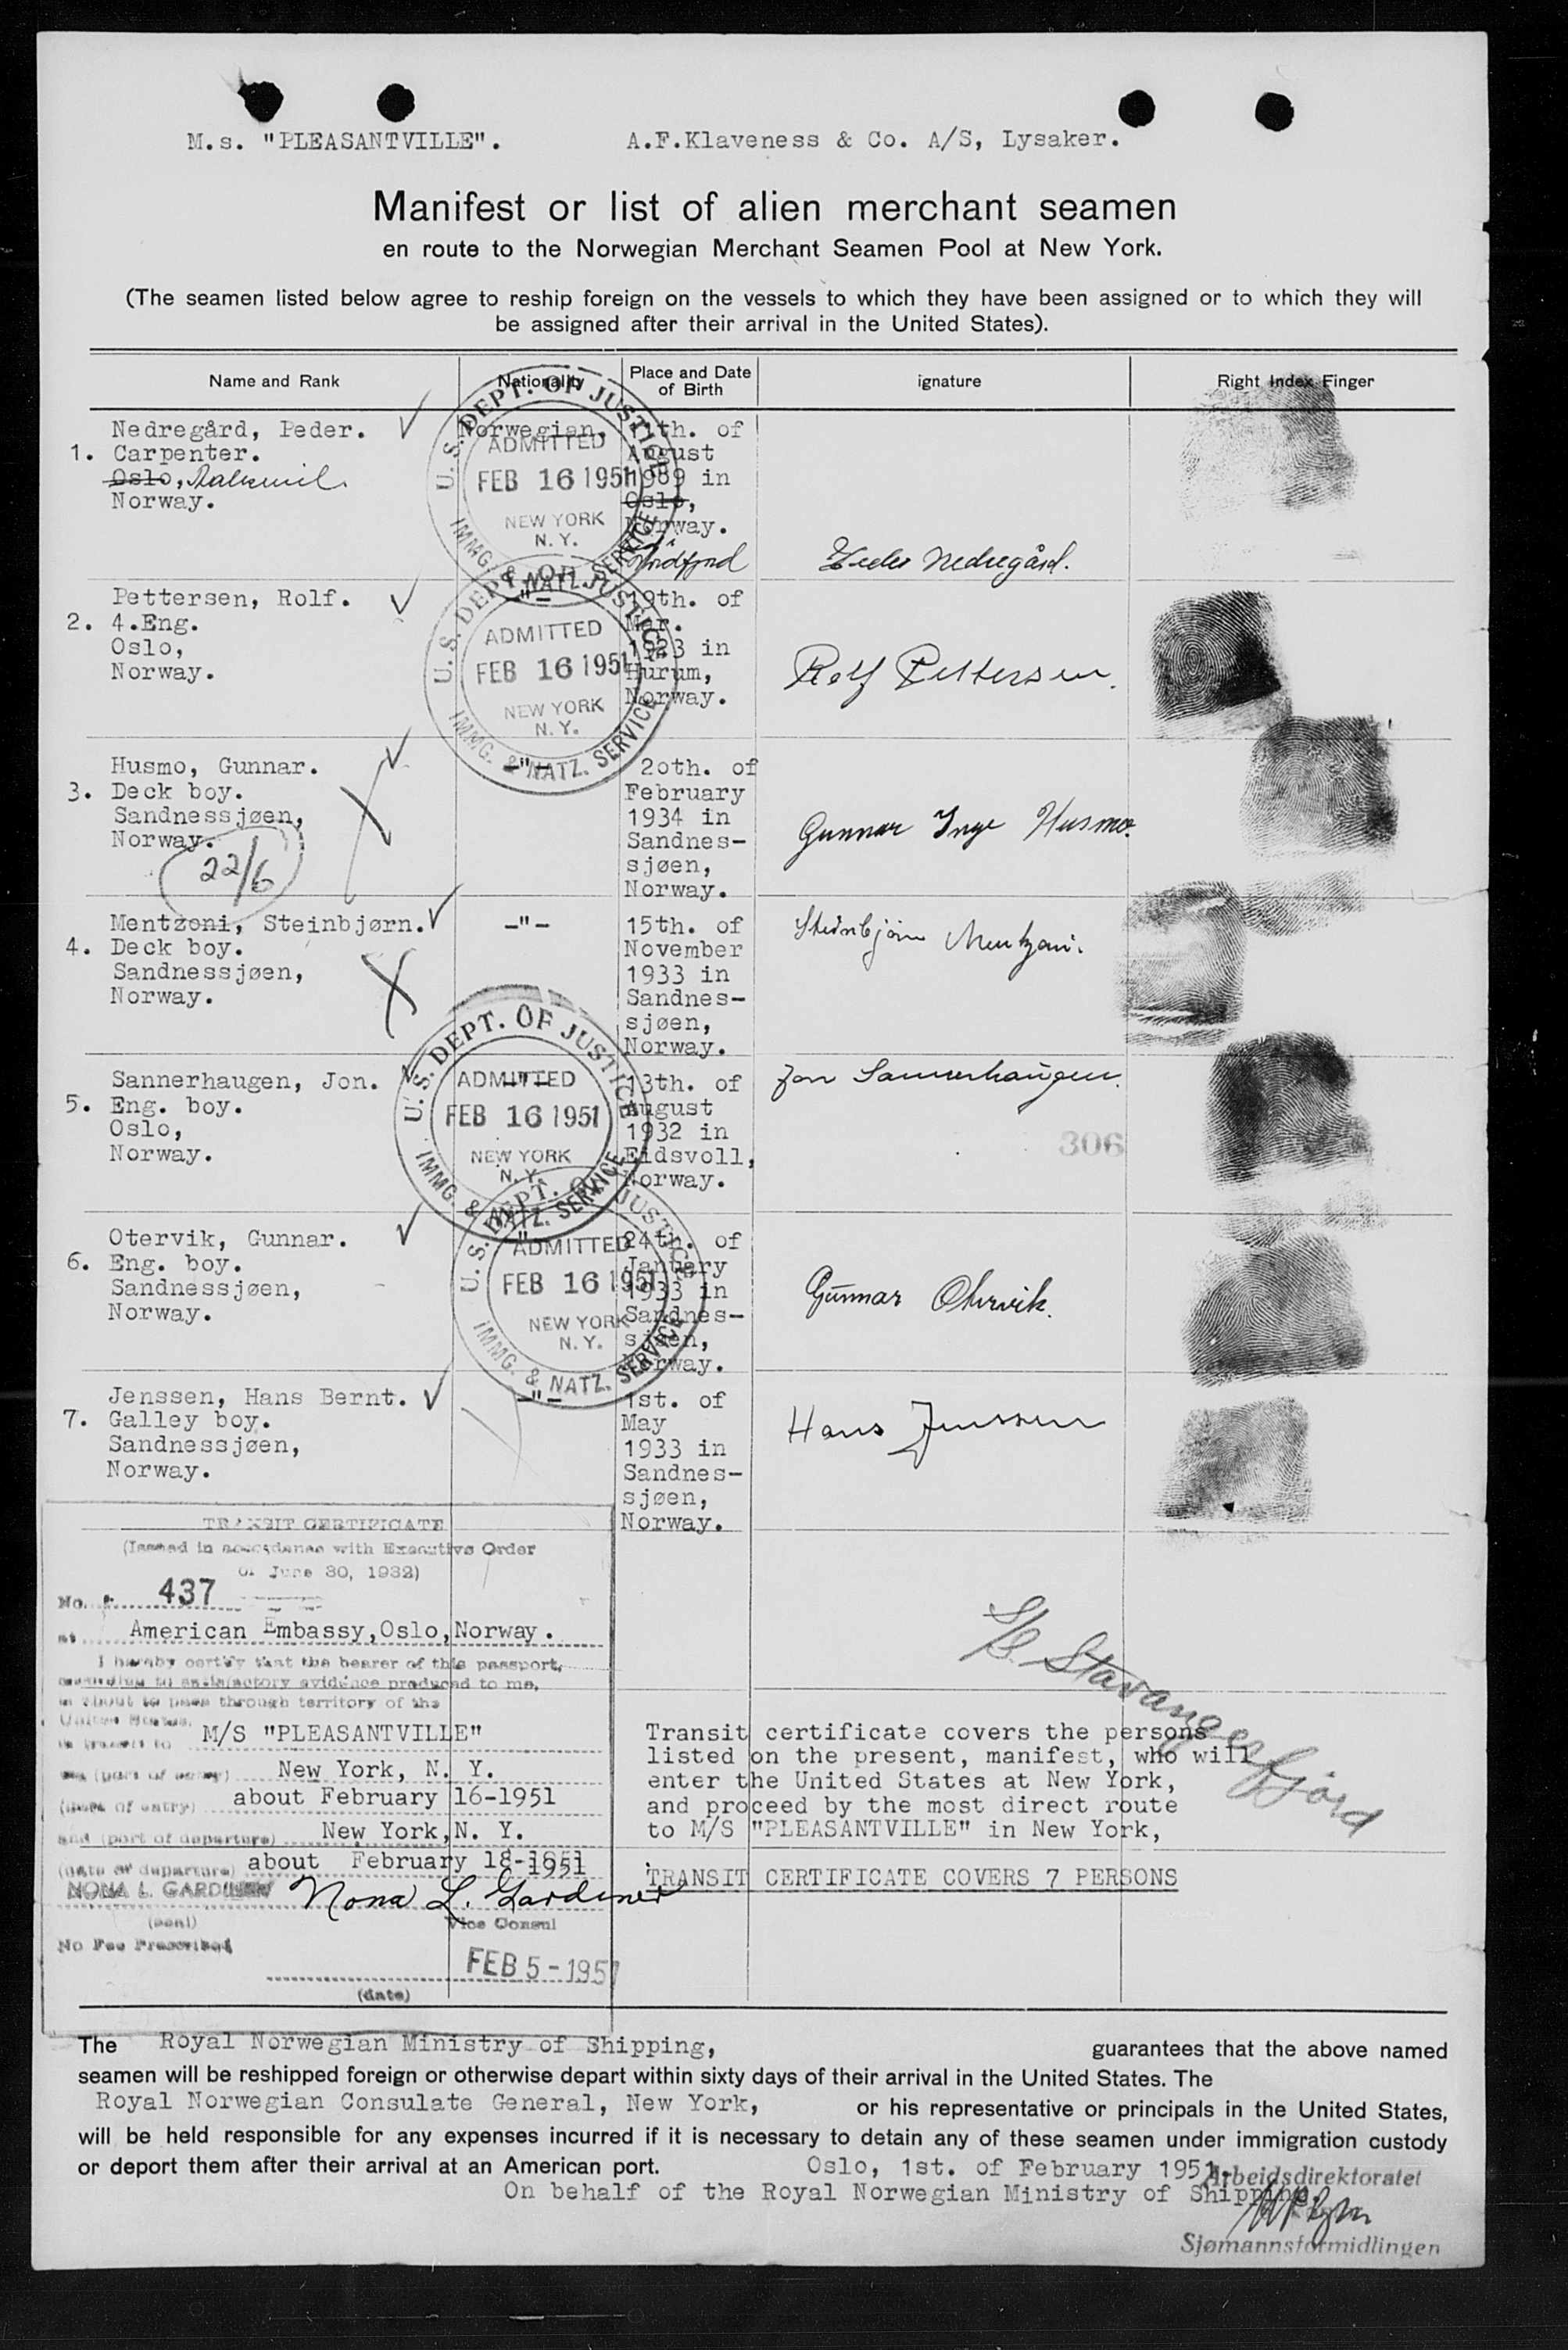 M.s. "PLEASANTVILLE". A.F.Klaveness & Co. A/S, Lysaker.
Manifest or list of alien merchant seamen
en route to the Norwegian Merchant Seamen Pool at New York.
(The seamen listed below agree to reship foreign on the vessels to which they have been assigned or to which they will
be assigned after their arrival in the United States).
Name and Rank
Nationality
Place and Date
of Birth
ignature
Right Index Finger
1.
Nedregård, Peder.
Carpenter.
Oslo,
Norway.
Norwegian,
11th. of
August
in
Oslo,
Norway.
Peder Nedregård.
U.S. DEPT. OF JUSTICE
ADMITTED
FEB 16 1951
NEW YORK
N.Y.
IMMG. & NATZ. SERVICE
2.
Pettersen, Rolf.
4.Eng.
Oslo,
Norway.
-"-
19th. of
Mar.
1923 in
Hurum,
Norway.
Rolf Pettersen.
U.S. DEPT. OF JUSTICE
ADMITTED
FEB 16 1951
NEW YORK
N.Y.
IMMG. & NATZ. SERVICE
3.
Husmo, Gunnar.
Deck boy.
Sandnessjøen,
Norway.
22/6
-"-
2oth. of
February
1934 in
Sandnes-
sjøen,
Norway.
Gunnar Inge Husmo.
4.
Mentzoni, Steinbjørn.
Deck boy.
Sandnessjøen,
Norway.
-"-
15th. of
November
1933 in
Sandnes-
sjøen,
Norway.
Steinbjørn Mentzoni.
5.
Sannerhaugen, Jon.
Eng. boy.
Oslo,
Norway.
-"-
13th. of
August
1932 in
Eidsvoll,
Norway.
Jon Sannerhaugen.
306
U.S. DEPT. OF JUSTICE
ADMITTED
FEB 16 1951
NEW YORK
N.Y.
IMMG. & NATZ. SERVICE
6.
Otervik, Gunnar.
Eng. boy.
Sandnessjøen,
Norway.
-"-
24th. of
January
1933 in
Sandnes-
sjøen,
Norway.
Gunnar Otervik.
U.S. DEPT. OF JUSTICE
ADMITTED
FEB 16 1951
NEW YORK
N.Y.
IMMG. & NATZ. SERVICE
7.
Jenssen, Hans Bernt.
Galley boy.
Sandnessjøen,
Norway.
-"-
1st. of
May
1933 in
Sandnes-
sjøen,
Norway.
Hans Jenssen
TRANSIT CERTIFICATE
(Issued in accordance with Executive Order
of June 30, 1932)
No. 437
at American Embassy,Oslo,Norway.
I hereby certify that the bearer of this passport,
according to satisfactory evidence produced to me,
is about to pass through territory of the
United States,
in transit to M/S "PLEASANTVILLE"
via (port of entry) New York, N. Y.
(date of entry) about February 16-1951
and (port of departure) New York,N. Y.
(date of departure) about February 18-1951
NONA L. GARDINER Nona L. Gardiner
(seal) Vice Consul
No Fee Prescribed
FEB 5-1951
(date)
S/S. Stavangerfjord
Transit certificate covers the persons
listed on the present, manifest, who will
enter the United States at New York,
and proceed by the most direct route
to M/S "PLEASANTVILLE" in New York,
TRANSIT CERTIFICATE COVERS 7 PERSONS
The Royal Norwegian Ministry of Shipping, guarantees that the above named
seamen will be reshipped foreign or otherwise depart within sixty days of their arrival in the United States. The
Royal Norwegian Consulate General, New York, or his representative or principals in the United States,
will be held responsible for any expenses incurred if it is necessary to detain any of these seamen under immigration custody
or deport them after their arrival at an American port. Oslo, 1st. of February 1951.
On behalf of the Royal Norwegian Ministry of Shipping,
Arbeidsdirektoratet
Sjømannsformidlingen